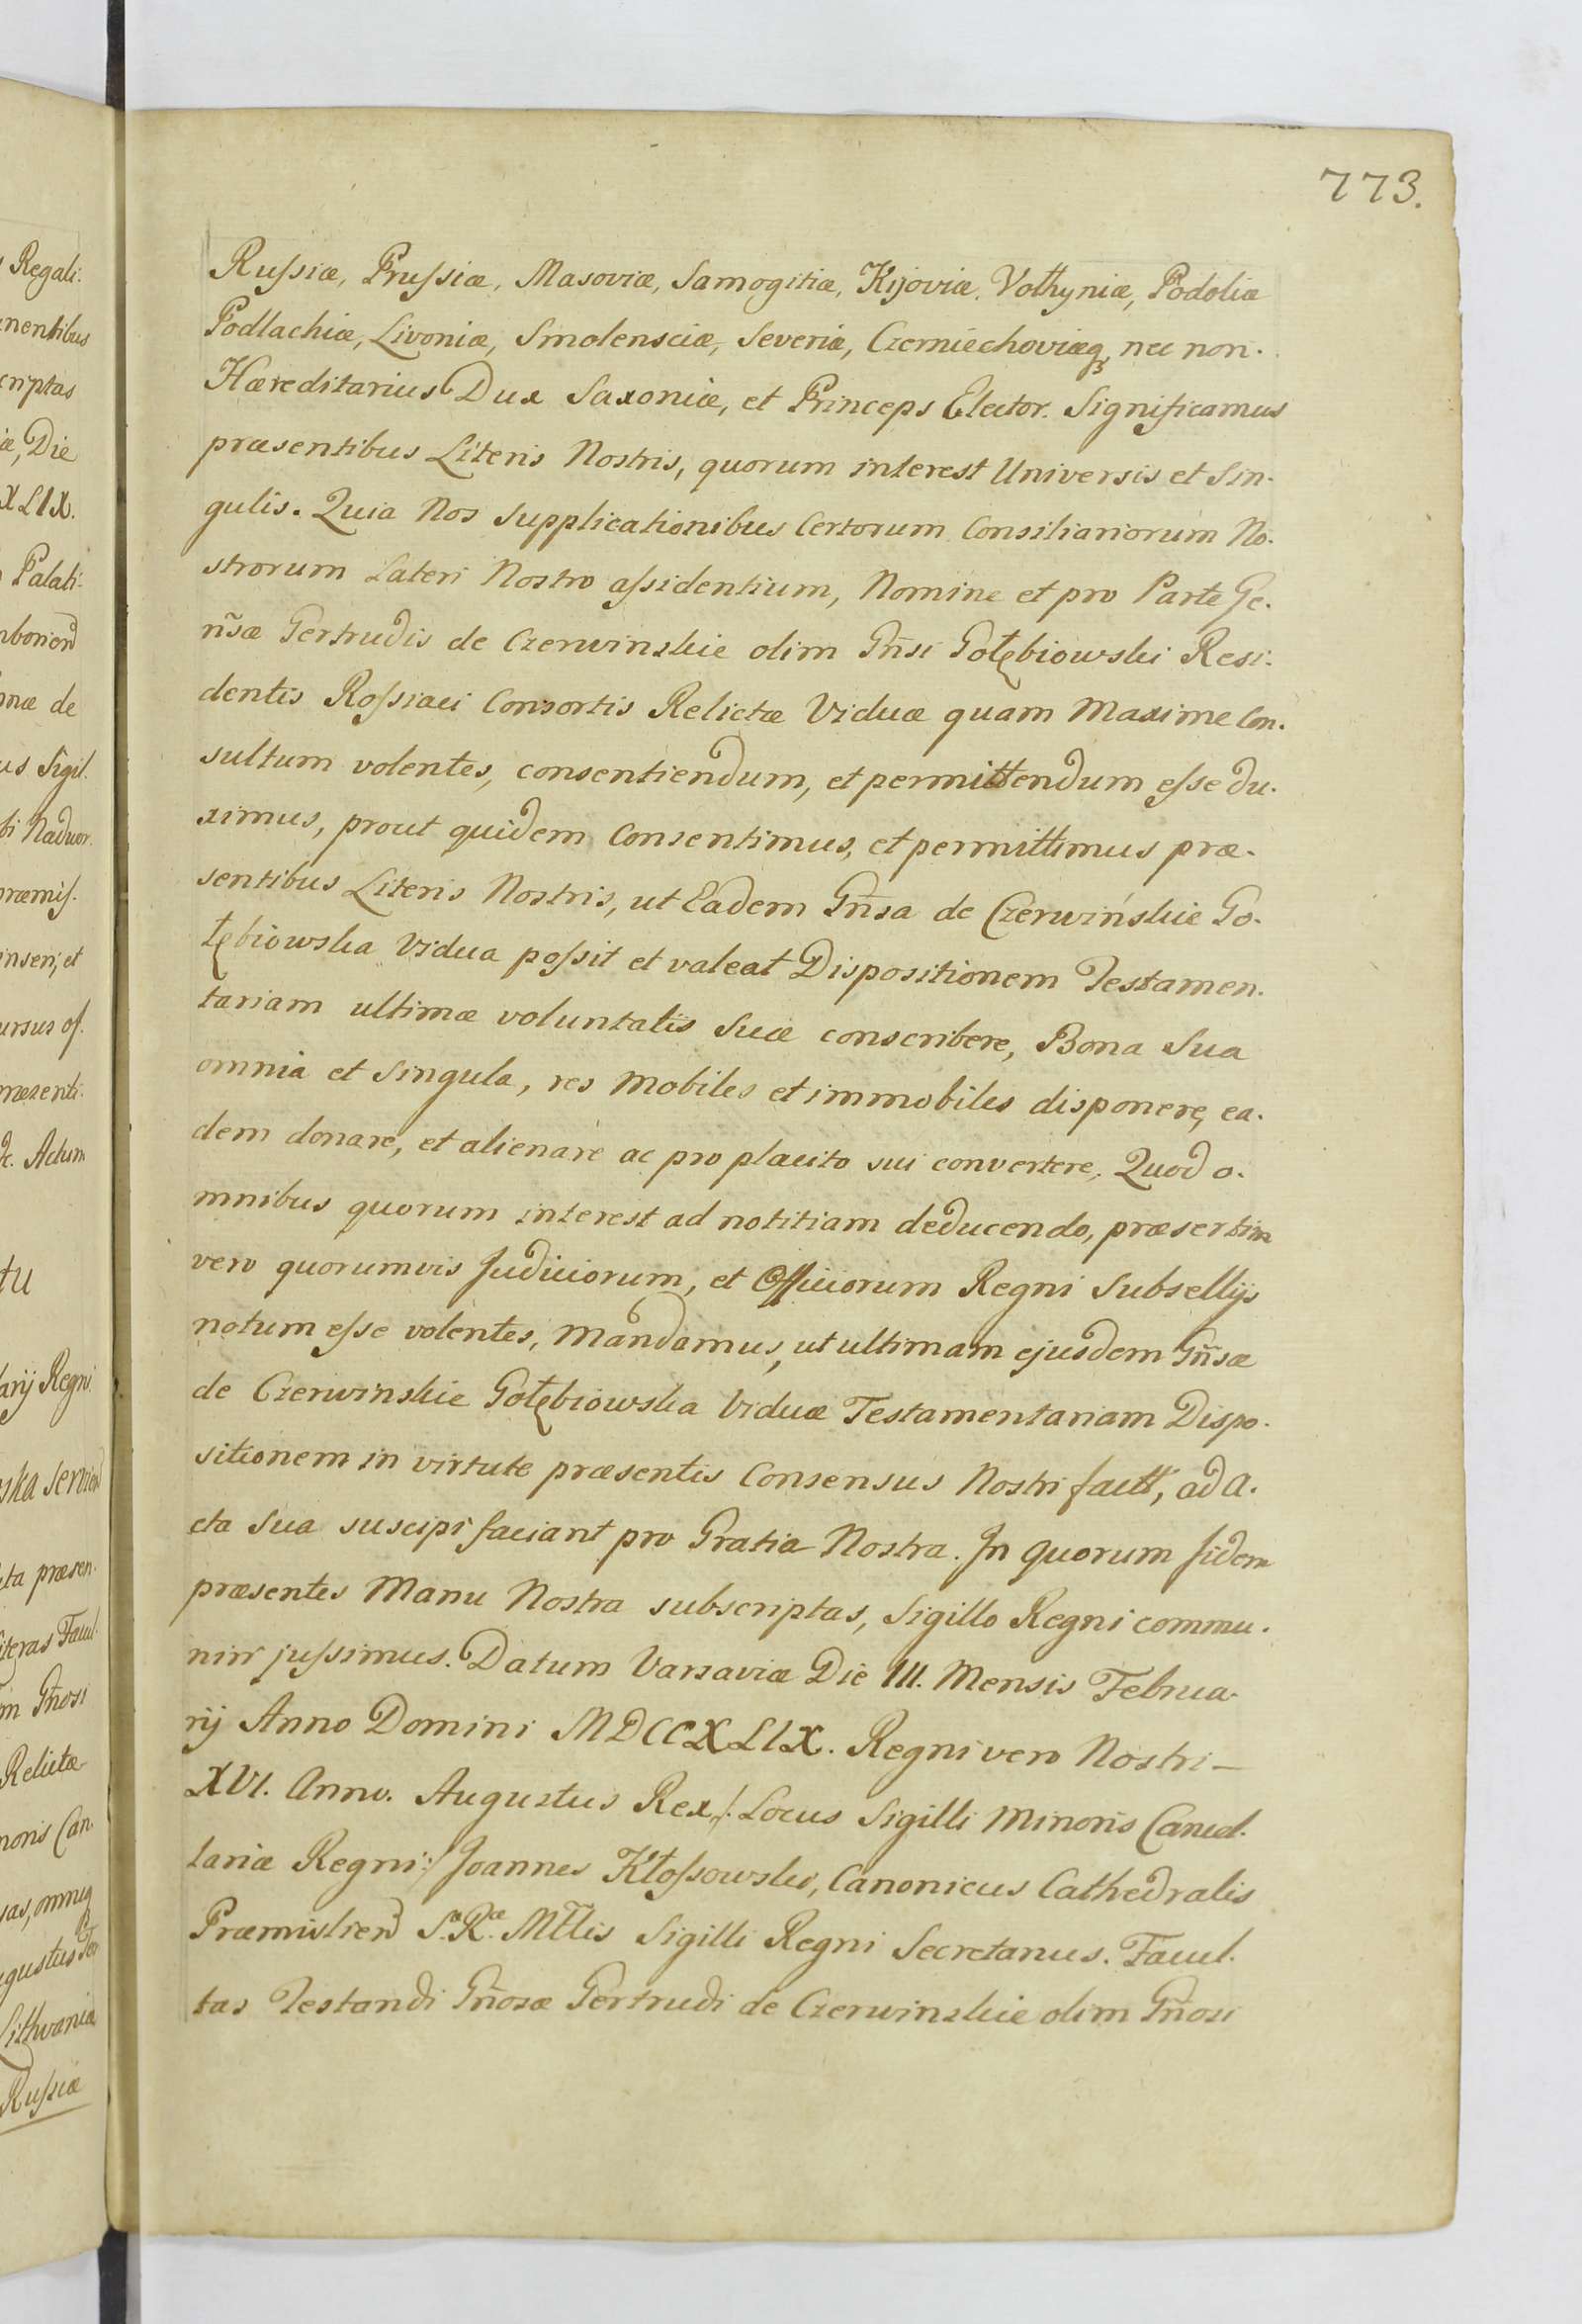 773.
Russiæ, Prussiæ, Masoviæ, Samogitiæ, Kijoviæ, Vołhyniæ, Podoliæ
Podlachiæ, Livoniæ, Smolensciæ, Severiæ, Czerniechoviæq, nec non.
Hæreditarius Dux Saxoniæ, et Princeps Elector. Significamus
præsentibus Literis Nostris, quorum interest Universis et Sin-
gulis. Quia Nos Supplicationibus Certorum Consiliariorum No-
strorum Lateri Nostro assidentium, Nomine et pro Parte Ge-
ñsæ Gertrudis de Czerwinskie olim Gñsi Gołębiowski Resi-
dentis Rossiaci Consortis Relictæ Viduæ quam Maxime Con-
sultum volentes, consentiendum, et permittendum esse du-
ximus, prout quidem Consentimus, et permittimus præ-
sentibus Literis Nostris, ut Eadem Gñsa de Czerwińskie Go-
łębiowska Vidua possit et valeat Dispositionem Testamen-
tariam ultimæ voluntatis Suæ conscribere, Bona Sua
omnia et Singula, res Mobiles et immobiles disponere, ea-
dem donare, et alienare ac pro placito sui convertere. Quod o-
mnibus quorum interest ad notitiam deducendo, præsertim
vero quorumvis Judiciorum, et Officiorum Regni Subsellijs
notum esse volentes, Mandamus, ut ultimam ejusdem Gñsæ
de Czerwinskie Gołębiowska Viduæ Testamentariam Dispo-
sitionem in virtute præsentis Consensus Nostri factt, ad A-
cta Sua suscipi faciant pro Gratia Nostra. In quorum fidem
præsentes Manu Nostra subscriptas, Sigillo Regni commu-
niri jussimus. Datum Varsaviæ Die III. Mensis Februa-
rij Anno Domini MDCCXLIX. Regni vero Nostri—
XVI. Anno. Augustus Rex /: Locus Sigilli Minoris Cancel-
lariæ Regni :/ Joannes Kłossowski, Canonicus Cathedralis
Præmislien S.R. Mttis Sigilli Regni Secretarius. Facul-
tas Testandi Gñosæ Gertrudi de Czerwinskie olim Gñosi